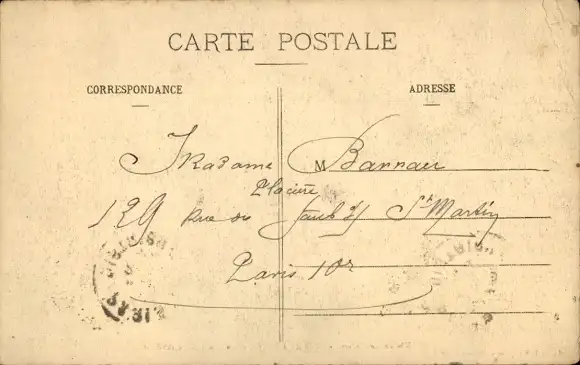 CARTE POSTALE
CORRESPONDANCE
ADRESSE
Madame M Barrau
129 Rue du Faubg St Martin
Paris 10e